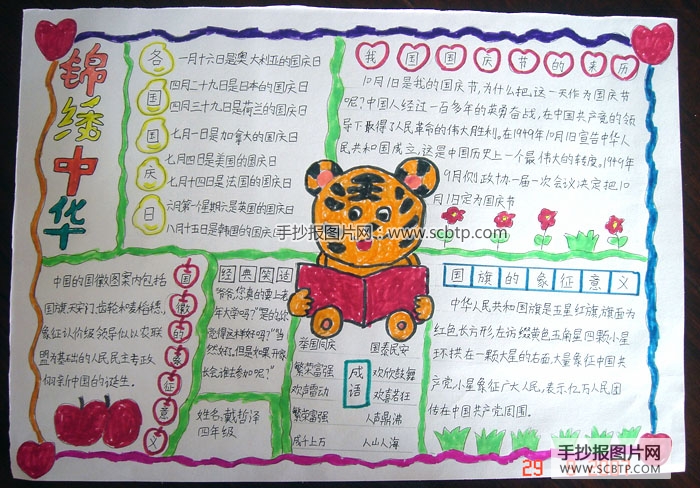 锦绣中华
各国国庆日
一月十六日是奥大利亚的国庆日
四月二十九是日本的国庆日
四月三十九是荷兰的国庆日
七月一日是加拿大的国庆日
七月四日是美国的国庆日
七月十四日是法国的国庆日
六月第一个星期六是英国的国庆日
八月十五日是韩国的国庆日
我国国庆节的来历
10月1日是我的国庆节,为什么把,这一天作为国庆节
呢?中国人经过一百多年的英勇奋战,在中国共产党的领
导下取得了人民革命的伟大胜利。在1949年10月1日宣告中华人
民共和国成立,这是中国历史上一个最伟大的转变,1949年
9月
政协一届一次会议决定把10
月1日定为国庆节
手抄报图片网:www.scbtp.com
中国的国徽图案内包括
国旗.天安门.齿轮和麦稻穗,
象征认价级领导似以农联
盟为基础的人民民主专政
新中国的诞生。
国徽的象征意义
经典笑话
"爷爷,您真的要上老
年大学吗?"是的,你
觉得这样好吗?""当
然好,但是如果开家
长会谁去参加呢?"
姓名,戴哲泽
四年级
成语
举国同庆 国泰民安
繁荣富强 欢欣鼓舞
欢声雷动 欢喜若狂
繁荣富强 人声鼎沸
成千上万 人山人海
国旗的象征意义
中华人民共和国旗是五星红旗,旗面为
红色,长方形,左访缀黄色五角星四颗小星
环拱在一颗大星的右面,大星象征中国共
产党,小星象征广大人民,表示亿万人民团
传在中国共产党周围。
29
手抄报图片网
WWW.SCBTP.COM